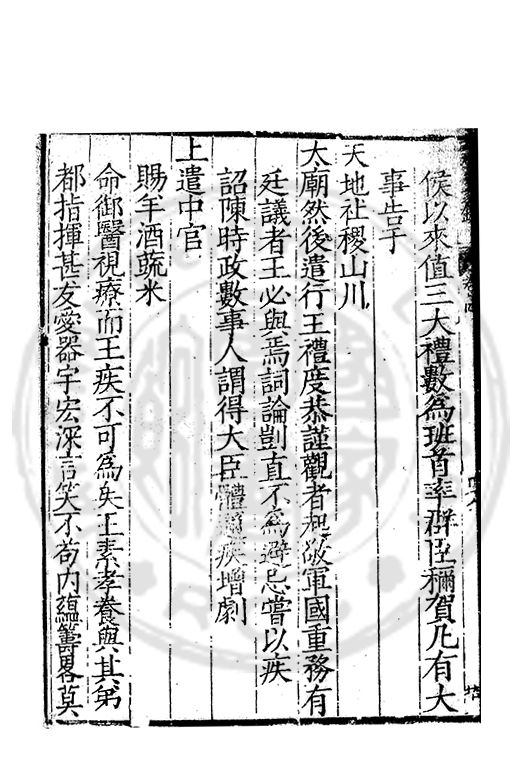 侯以來值三大禮數為班首率群臣稱賀凡有大
事告于
天地社稷山川
太廟然後遣行王禮度恭謹觀者起敬軍國重務有
廷議者王必與焉詞論剴直不為避忌嘗以疾
詔陳時政數事人謂得大臣體 疾增劇
上遣中官
賜羊酒蔬米
命御醫視療而王疾不可為矣王素孝養與其弟
都指揮甚友愛器宇宏深言笑不苟內蘊籌畧莫